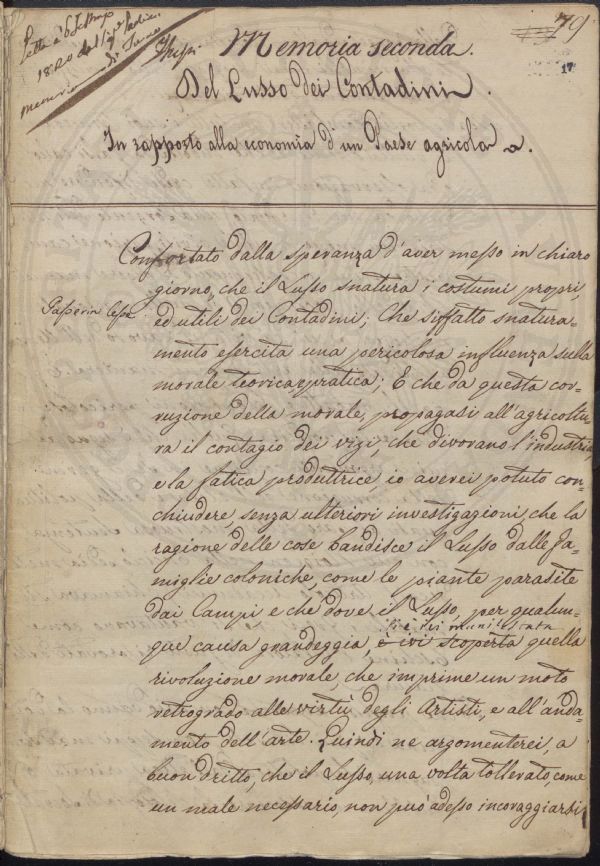 Letta a 6 
1820 dal Sig.e 
memoria
79
17
Memoria seconda.
Del Lusso dei Contadini.
In rapporto alla economia d'un Paese agricola.
Confortato dalla speranza d'aver messo in chiaro
giorno, che il Lusso snatura i costumi propri,
Passerin
ed utili dei Contadini; Che siffatto snatura-
mento esercita una pericolosa influenza sulla
morale teorica e pratica; E che da questa cor-
ruzione della morale, propagasi all'agricoltu-
ra il contagio dei vizi, che divorano l'industria
e la fatica produttrice io averei potuto con-
chiudere, senza ulteriori investigazioni, che la
ragione delle cose bandisce il Lusso dalle fa-
miglie coloniche, come le piante parasite
dai Campi, e che dove il Lusso, per qualun-
si è ivi manifestata
que causa grandeggia, è ivi scoperta quella
rivoluzione morale, che imprime un moto
retrogrado alle virtù degli Artisti, e all'anda-
mento dell'arte. Quindi ne argomenterei, a
buon dritto, che il Lusso, una volta tollerato, come
un male necessario, non può adesso incoraggiarsi,